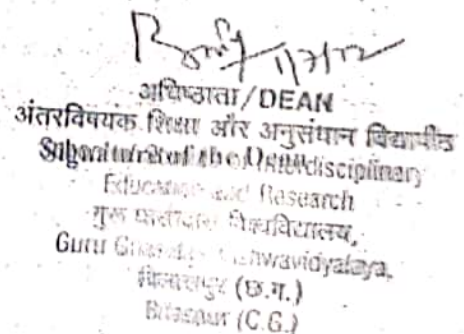 अधिष्ठाता/DEAN
अंतरविषयक शिक्षा और अनुसंधान विद्यापीठ
Interdisciplinary
Education and Research
गुरू घासीदास विश्वविद्यालय,
Guru Ghasidas Vishwavidyalaya,
बिलासपुर (छ.ग.)
Bilaspur (C.G.)